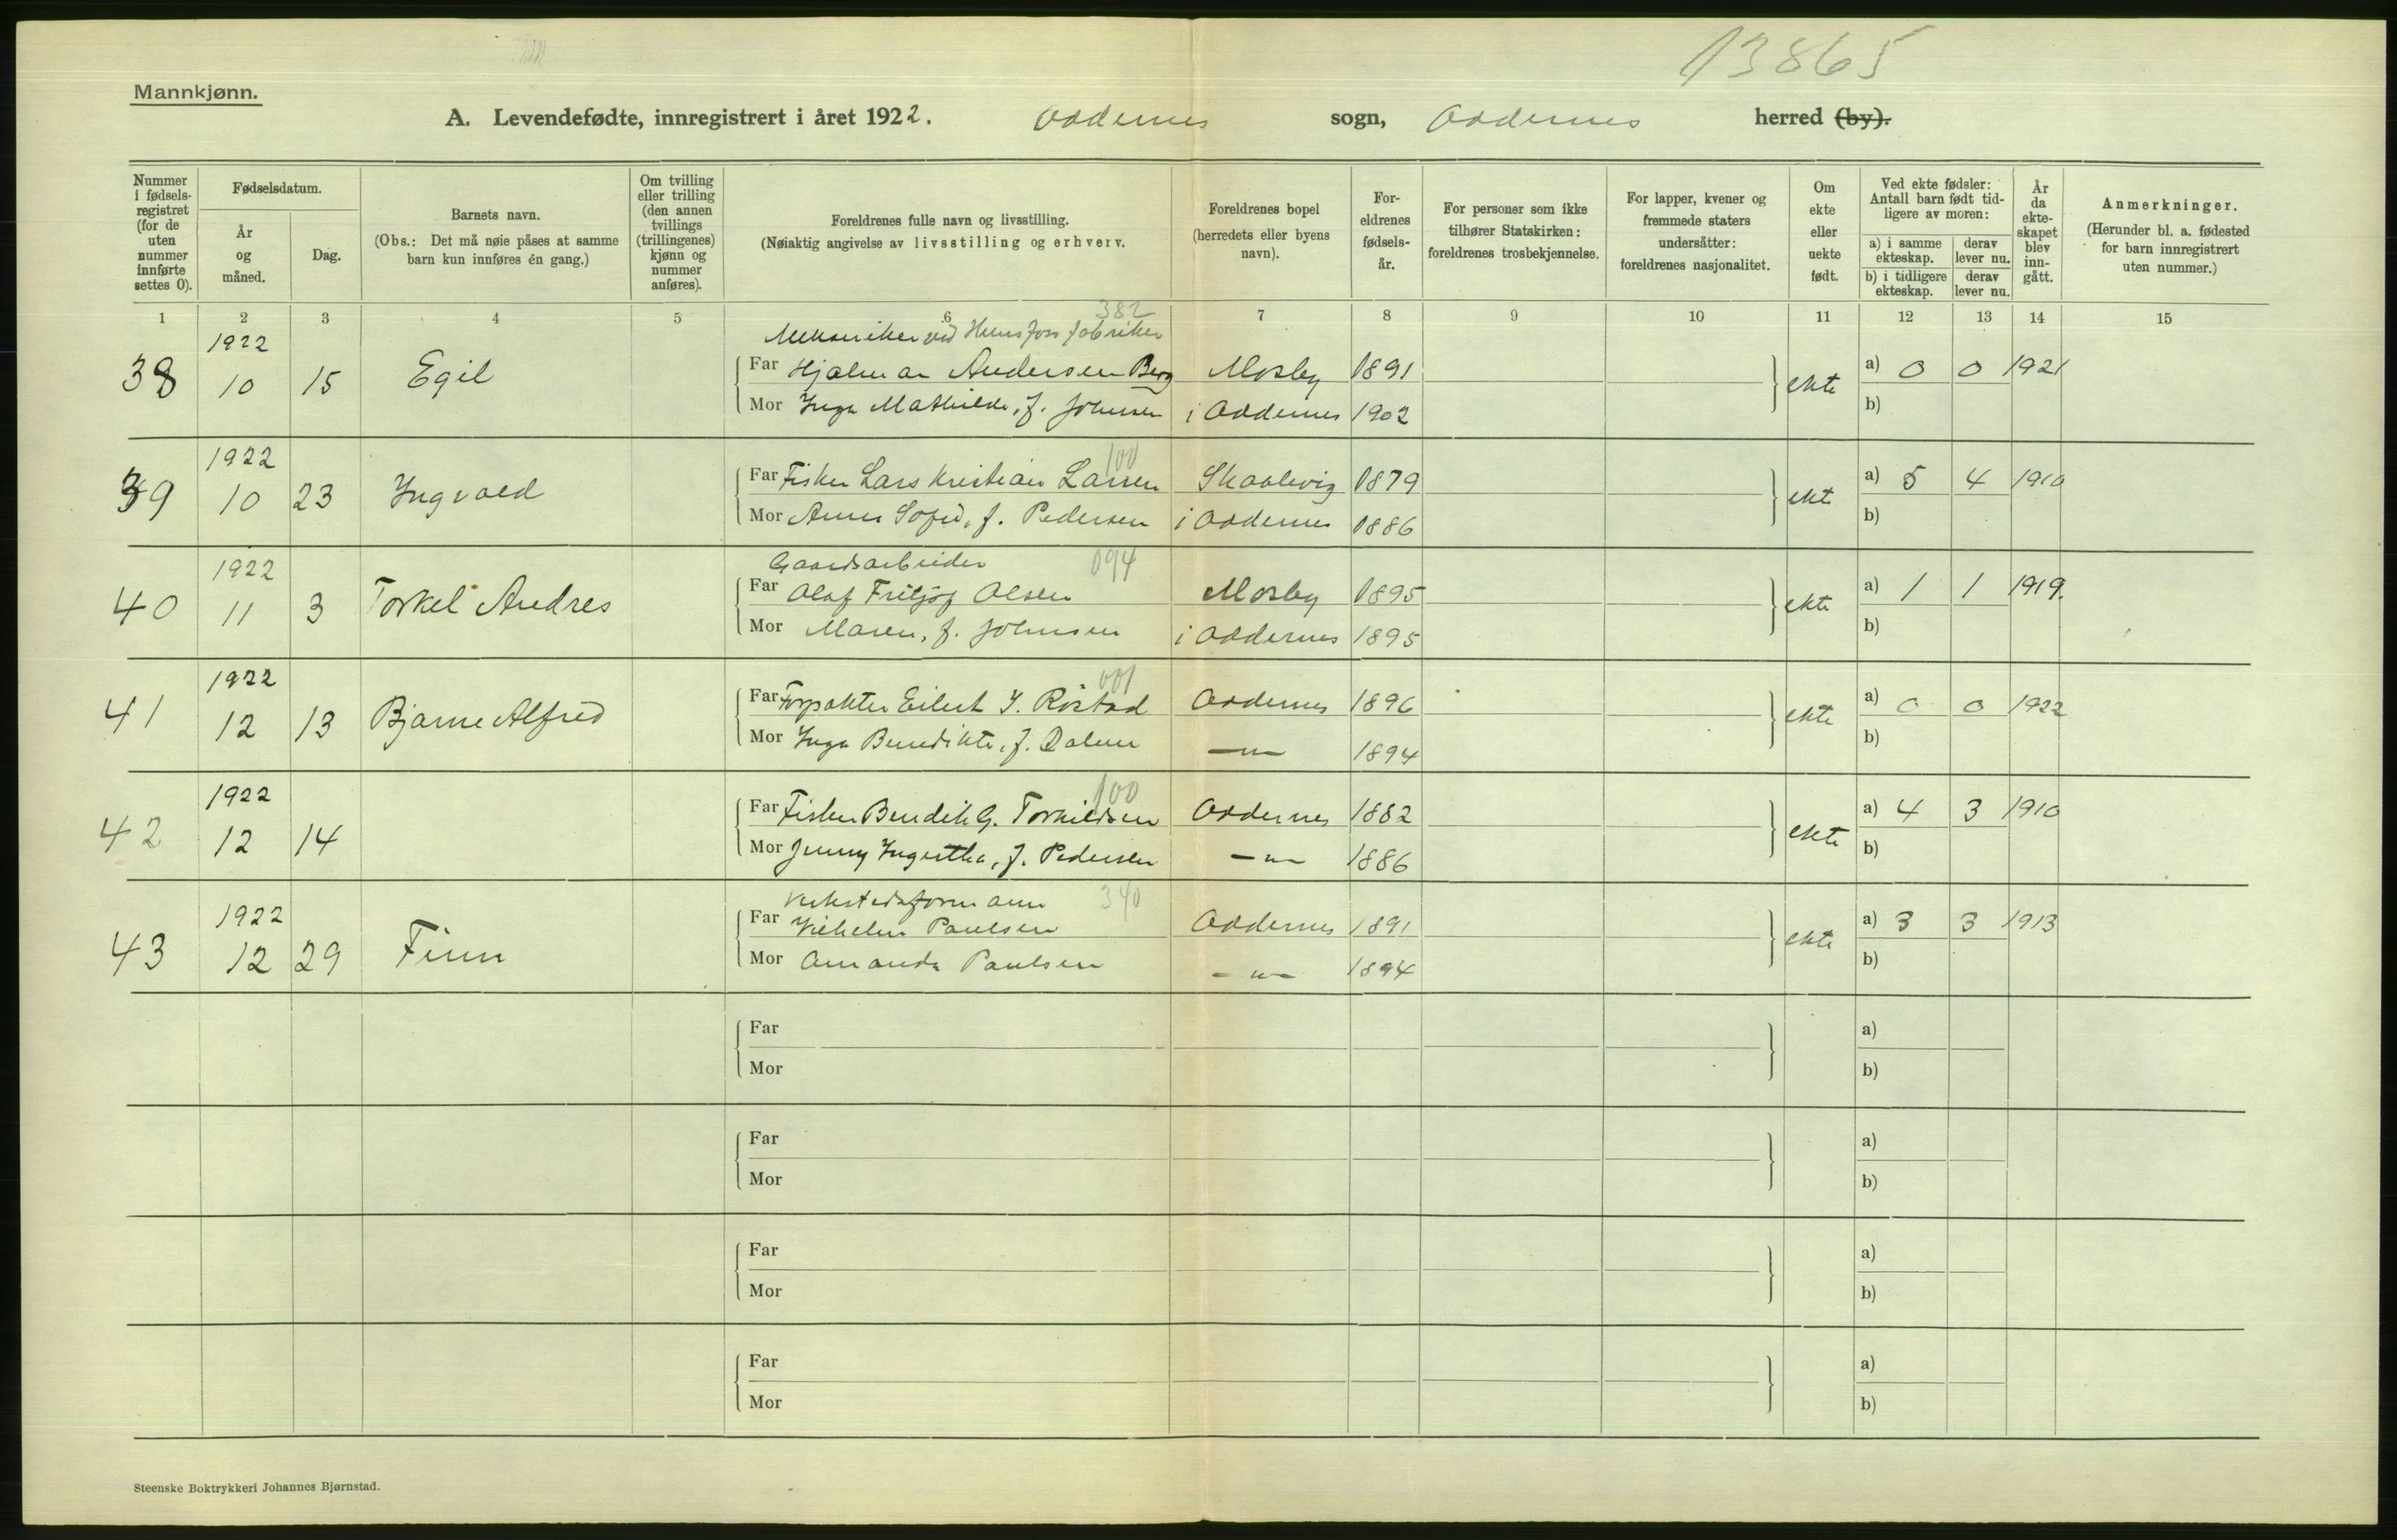 13865
Mannkjønn.
A. Levendefødte, innregistrert i året 1922. Oddernes sogn, Oddernes herred (by).
Nummer i fødsels-registret (for de uten nummer innførte settes 0).
Fødselsdatum.
År og måned.
Dag.
Barnets navn.
(Obs.: Det må nøie påses at samme barn kun innføres én gang.)
Om tvilling eller trilling (den annen tvillings (trillingenes) kjønn og nummer anføres).
Foreldrenes fulle navn og livsstilling.
(Nøiaktig angivelse av livsstilling og erhverv.
Foreldrenes bopel (herredets eller byens navn).
For-eldrenes fødsels-år.
For personer som ikke tilhører Statskirken: foreldrenes trosbekjennelse.
For lapper, kvener og fremmede staters undersåtter: foreldrenes nasjonalitet.
Om ekte eller uekte født.
Ved ekte fødsler: Antall barn født tid-ligere av moren:
a) i samme ekteskap.
derav lever nu.
b) i tidligere ekteskap.
derav lever nu.
År da ekte-skapet blev inn-gått.
Anmerkninger.
(Herunder bl. a. fødested for barn innregistrert uten nummer.)
1 2 3 4 5 6 7 8 9 10 11 12 13 14 15
382
1922 Mekaniker ved Hunsfoss fabriker
38 10 15 Egil Far Hjalmar Andersen Berg Mosby 1891 ekte a) 0 0 1921
Mor Inga Mathilde, f. Johnsen i Oddernes 1902 b)
1922 100
39 10 23 Ingvald Far Fisker Lars Kristian Larsen Skaalevig 1879 ekte a) 5 4 1910
Mor Anna Sofie, f. Pedersen i Oddernes 1886 b)
1922 Gaardsarbeider 094
40 11 3 Torkel Andres Far Olaf Fritjof Olsen Mosby 1895 ekte a) 1 1 1919.
Mor Maren, f. Johnsen i Oddernes 1895 b)
1922 001
41 12 13 Bjarne Alfred Far Forpakter Eilert I. Rostad Oddernes 1896 ekte a) 0 0 1922
Mor Inga Benedikte, f. Dalene —"— 1894 b)
1922 100
42 12 14 Far Fisker Bendik G. Torkildsen Oddernes 1882 ekte a) 4 3 1910
Mor Jenny, f. Pedersen —"— 1886 b)
1922 Verkstedsformann 340
43 12 29 Finn Far Vilhelm Paulsen Oddernes 1891 ekte a) 3 3 1913
Mor Amanda Paulsen —"— 1894 b)
Far a)
Mor b)
Far a)
Mor b)
Far a)
Mor b)
Far a)
Mor b)
Steenske Boktrykkeri Johannes Bjørnstad.